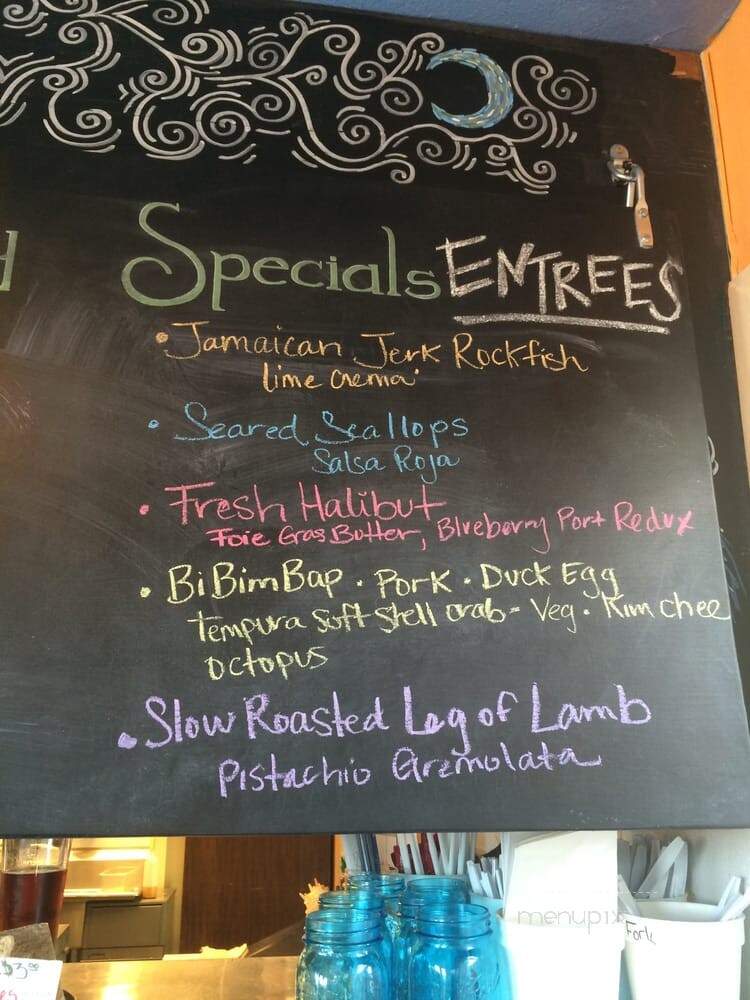 Specials ENTREES
• Jamaican Jerk Rockfish
lime crema
• Seared Scallops
Salsa Roja
• Fresh Halibut
Foie Gras Butter, Blueberry Port Redux
• BiBimBap • Pork • Duck Egg
tempura soft shell crab - Veg. Kim chee
octopus
• Slow Roasted Leg of Lamb
Pistachio Gremolata
menupix
Fork
$3.00